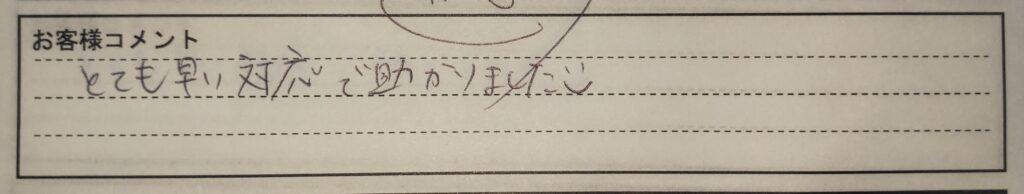 お客様コメント
とても早い対応で助かりました